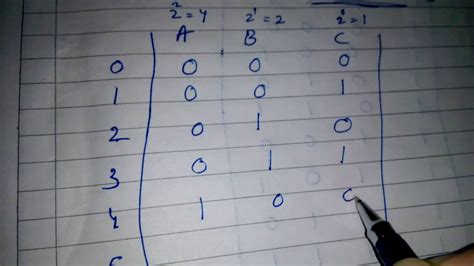 2² = 4 2¹ = 2 2⁰ = 1
A B C
0 0 0 0
1 0 0 1
2 0 1 0
3 0 1 1
4 1 0 0